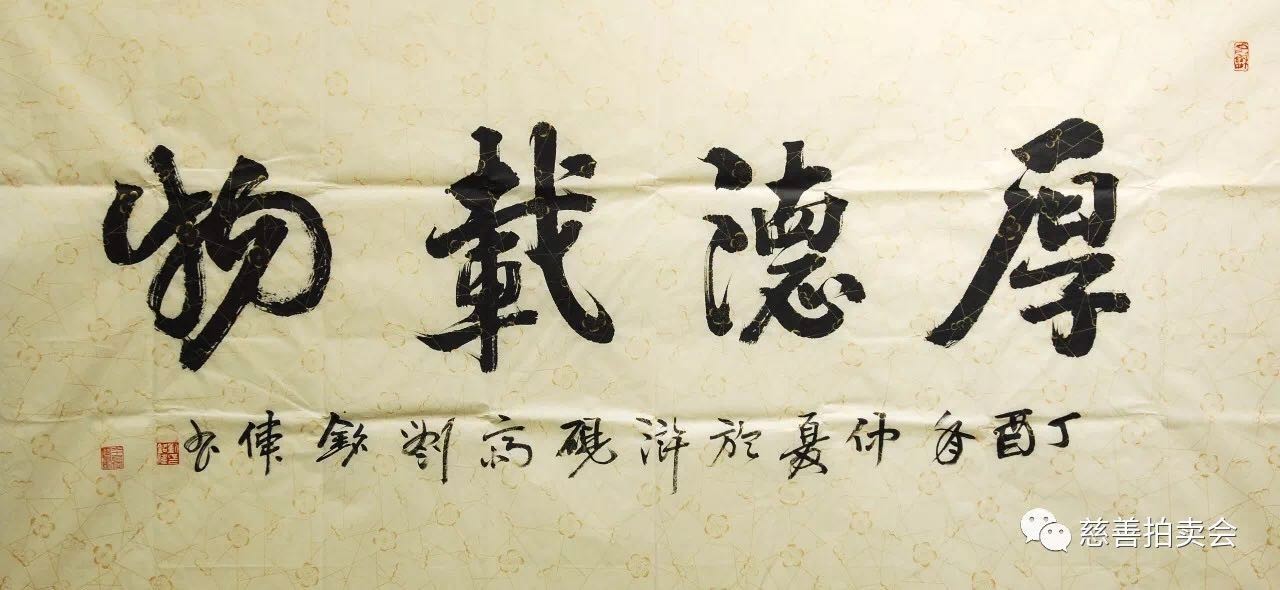 厚德載物
丁酉年仲夏於滸硯齋劉銘偉書
慈善拍卖会